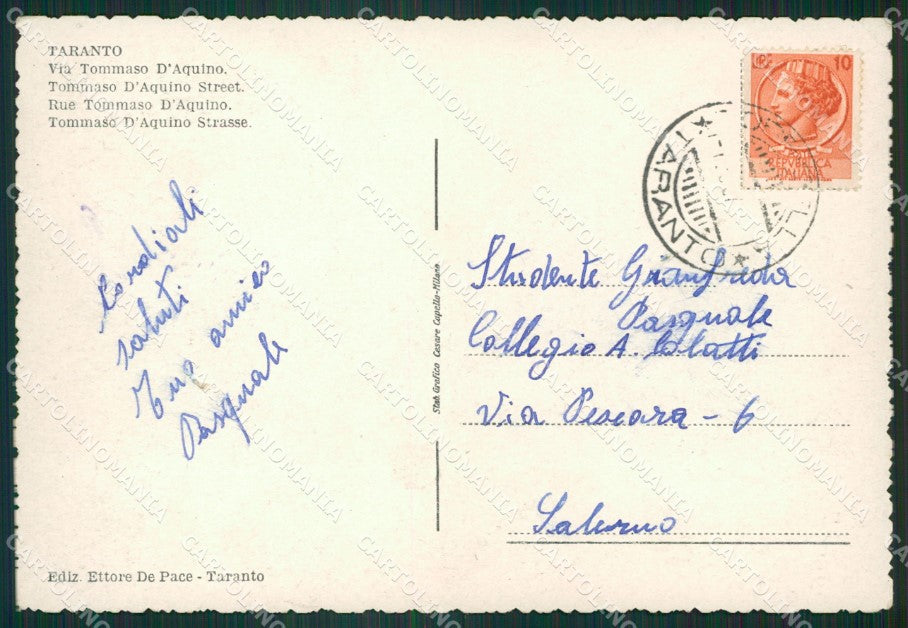 TARANTO
Via Tommaso D'Aquino.
Tommaso D'Aquino Street.
Rue Tommaso D'Aquino.
Tommaso D'Aquino Strasse.
LIRE 10
POSTE
REPVBBLICA
ITALIANA
TARANTO
Cordiali
saluti
Tuo amico
Pasquale
Stab. Grafico Cesare Capello-Milano
Studente Granfreda
Pasquale
Collegio A.
Via Pescara - 6
Salerno
Ediz. Ettore De Pace - Taranto
CARTOLINOMANIA